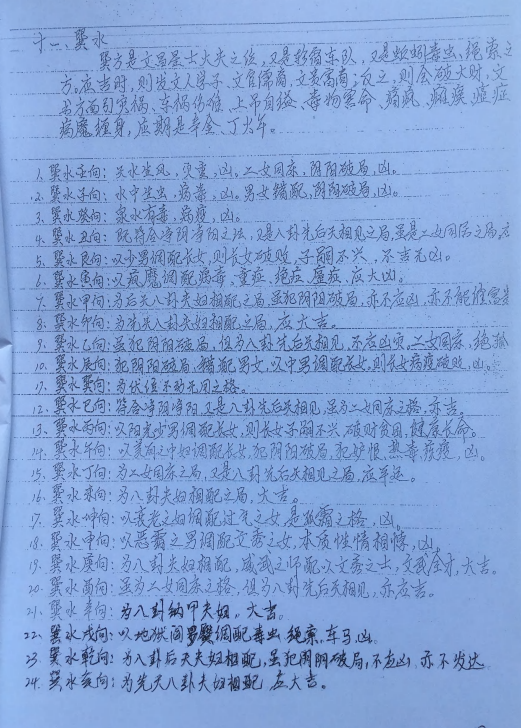 十一、巽水
巽方是文昌星士大夫之位,又是轸宿车队,又是蚯蚓毒虫、绳索之
方。应吉时,则发文人学子,文官儒商,文秀富商;反之,则会破大财,文
书方面引灾祸、车祸伤难、上吊自缢、毒物害命、痛疯、瘫痪、瘟症
病魔缠身,应期是辛金、丁火年。
1. 巽水壬向:失水生风,灾重,凶。二女同床,阴阳破局,凶。
2. 巽水子向:水中生虫,病毒,凶。男女错配,阴阳破局,凶。
3. 巽水癸向:泉水有毒,病疫,凶。
4. 巽水丑向:既符合净阴净阳之法,又是八卦先后天相见之局,虽是二女同居之局,
5. 巽水艮向:以少男调配长女,则长女破败,子嗣不兴,不吉无凶。
6. 巽水寅向:以疯魔调配病毒、重症、绝症、瘟疫、应大凶。
7. 巽水甲向:为后天八卦夫妇相配之局,虽犯阴阳破局,亦不应凶,亦不能
8. 巽水卯向:为先天八卦夫妇相配之局,应大吉。
9. 巽水乙向:虽犯阴阳破局,但为八卦先后天相见,不应凶灾,二女同床,绝
10. 巽水辰向:犯阴阳破局,错配男女,以中男调配长女,则长女病疫破败,凶。
11. 巽水巽向:为伏位不动无用之格。
12. 巽水巳向:符合净阴净阳,又是八卦先后天相见,虽为二女同床之格,亦吉。
13. 巽水丙向:以阳光少男调配长女,则长女子嗣不兴,破财贫困,健康长命。
14. 巽水午向:以美丽之中妇调配长女,犯阴阳破局,犯妒恨,热毒,疫症,凶。
15. 巽水丁向:为二女同床之局,又是八卦先后天相见之局,应平运。
16. 巽水未向:为八卦夫妇相配之局,大吉。
17. 巽水坤向:以衰老之妇调配过气之女,是孤霜之格,凶。
18. 巽水申向:以恶霸之男调配文秀之女,本质性情相悖,凶。
19. 巽水庚向:为八卦夫妇相配,威武之师配以文秀之士,文武全才,大吉。
20. 巽水酉向:虽为二女同床之格,但为八卦先后天相见,亦应吉。
21. 巽水辛向:为八卦纳甲夫妇。大吉。
22. 巽水戌向:以地狱阎罗调配毒虫绳索,车马,凶。
23. 巽水乾向:为八卦后天夫妇相配,虽犯阴阳破局,不应凶 亦不发达
24. 巽水亥向:为先天八卦夫妇相配 应大吉。